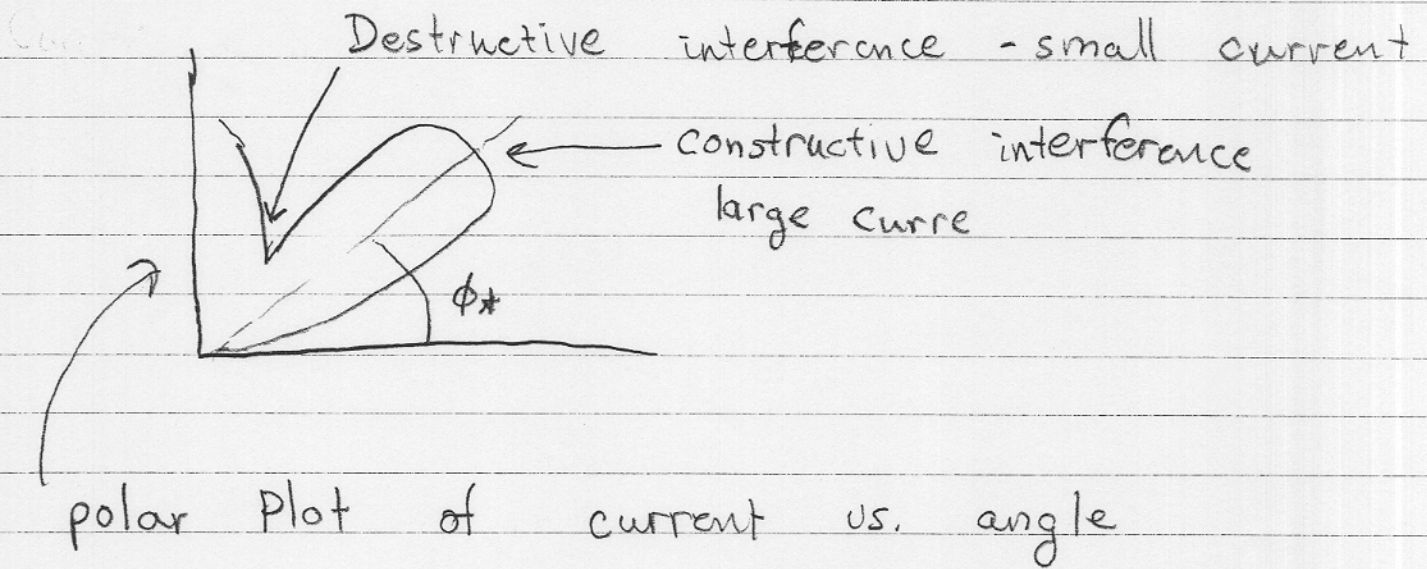 Destructive interference - small current
constructive interference
large curre
ϕ*
polar Plot of current vs. angle